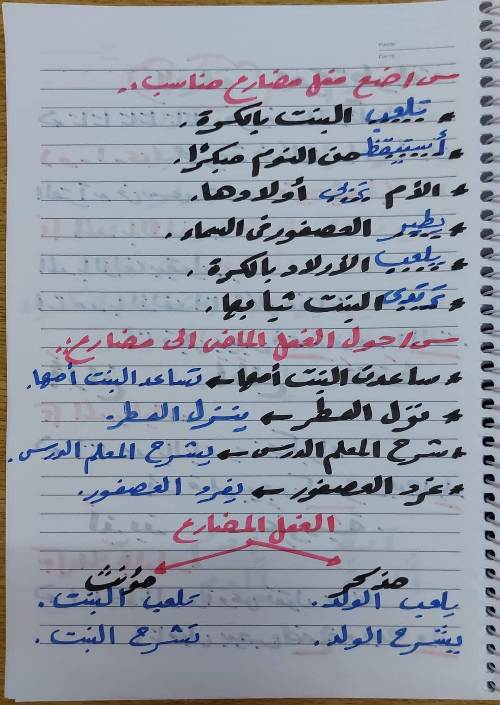 س/ اضع فعل مضارع مناسب..
* تلعب البنت بالكرة.
* أستيقظ من النوم مبكرًا.
* الأم تربي أولادها.
* يطير العصفور في السماء.
* يلعب الأولاد بالكرة.
* ترتدي البنت ثيابها.
س/ احول الفعل الماضي الى مضارع:.
* ساعدت البنت أمها ← تساعد البنت أمها.
* نزل المطر ← ينزل المطر.
* شرح المعلم الدرس ← يشرح المعلم الدرس.
* غرد العصفور ← يغرد العصفور.
الفعل المضارع
مذكر مؤنث
يلعب الولد. تلعب البنت.
يشرح الولد. تشرح البنت.